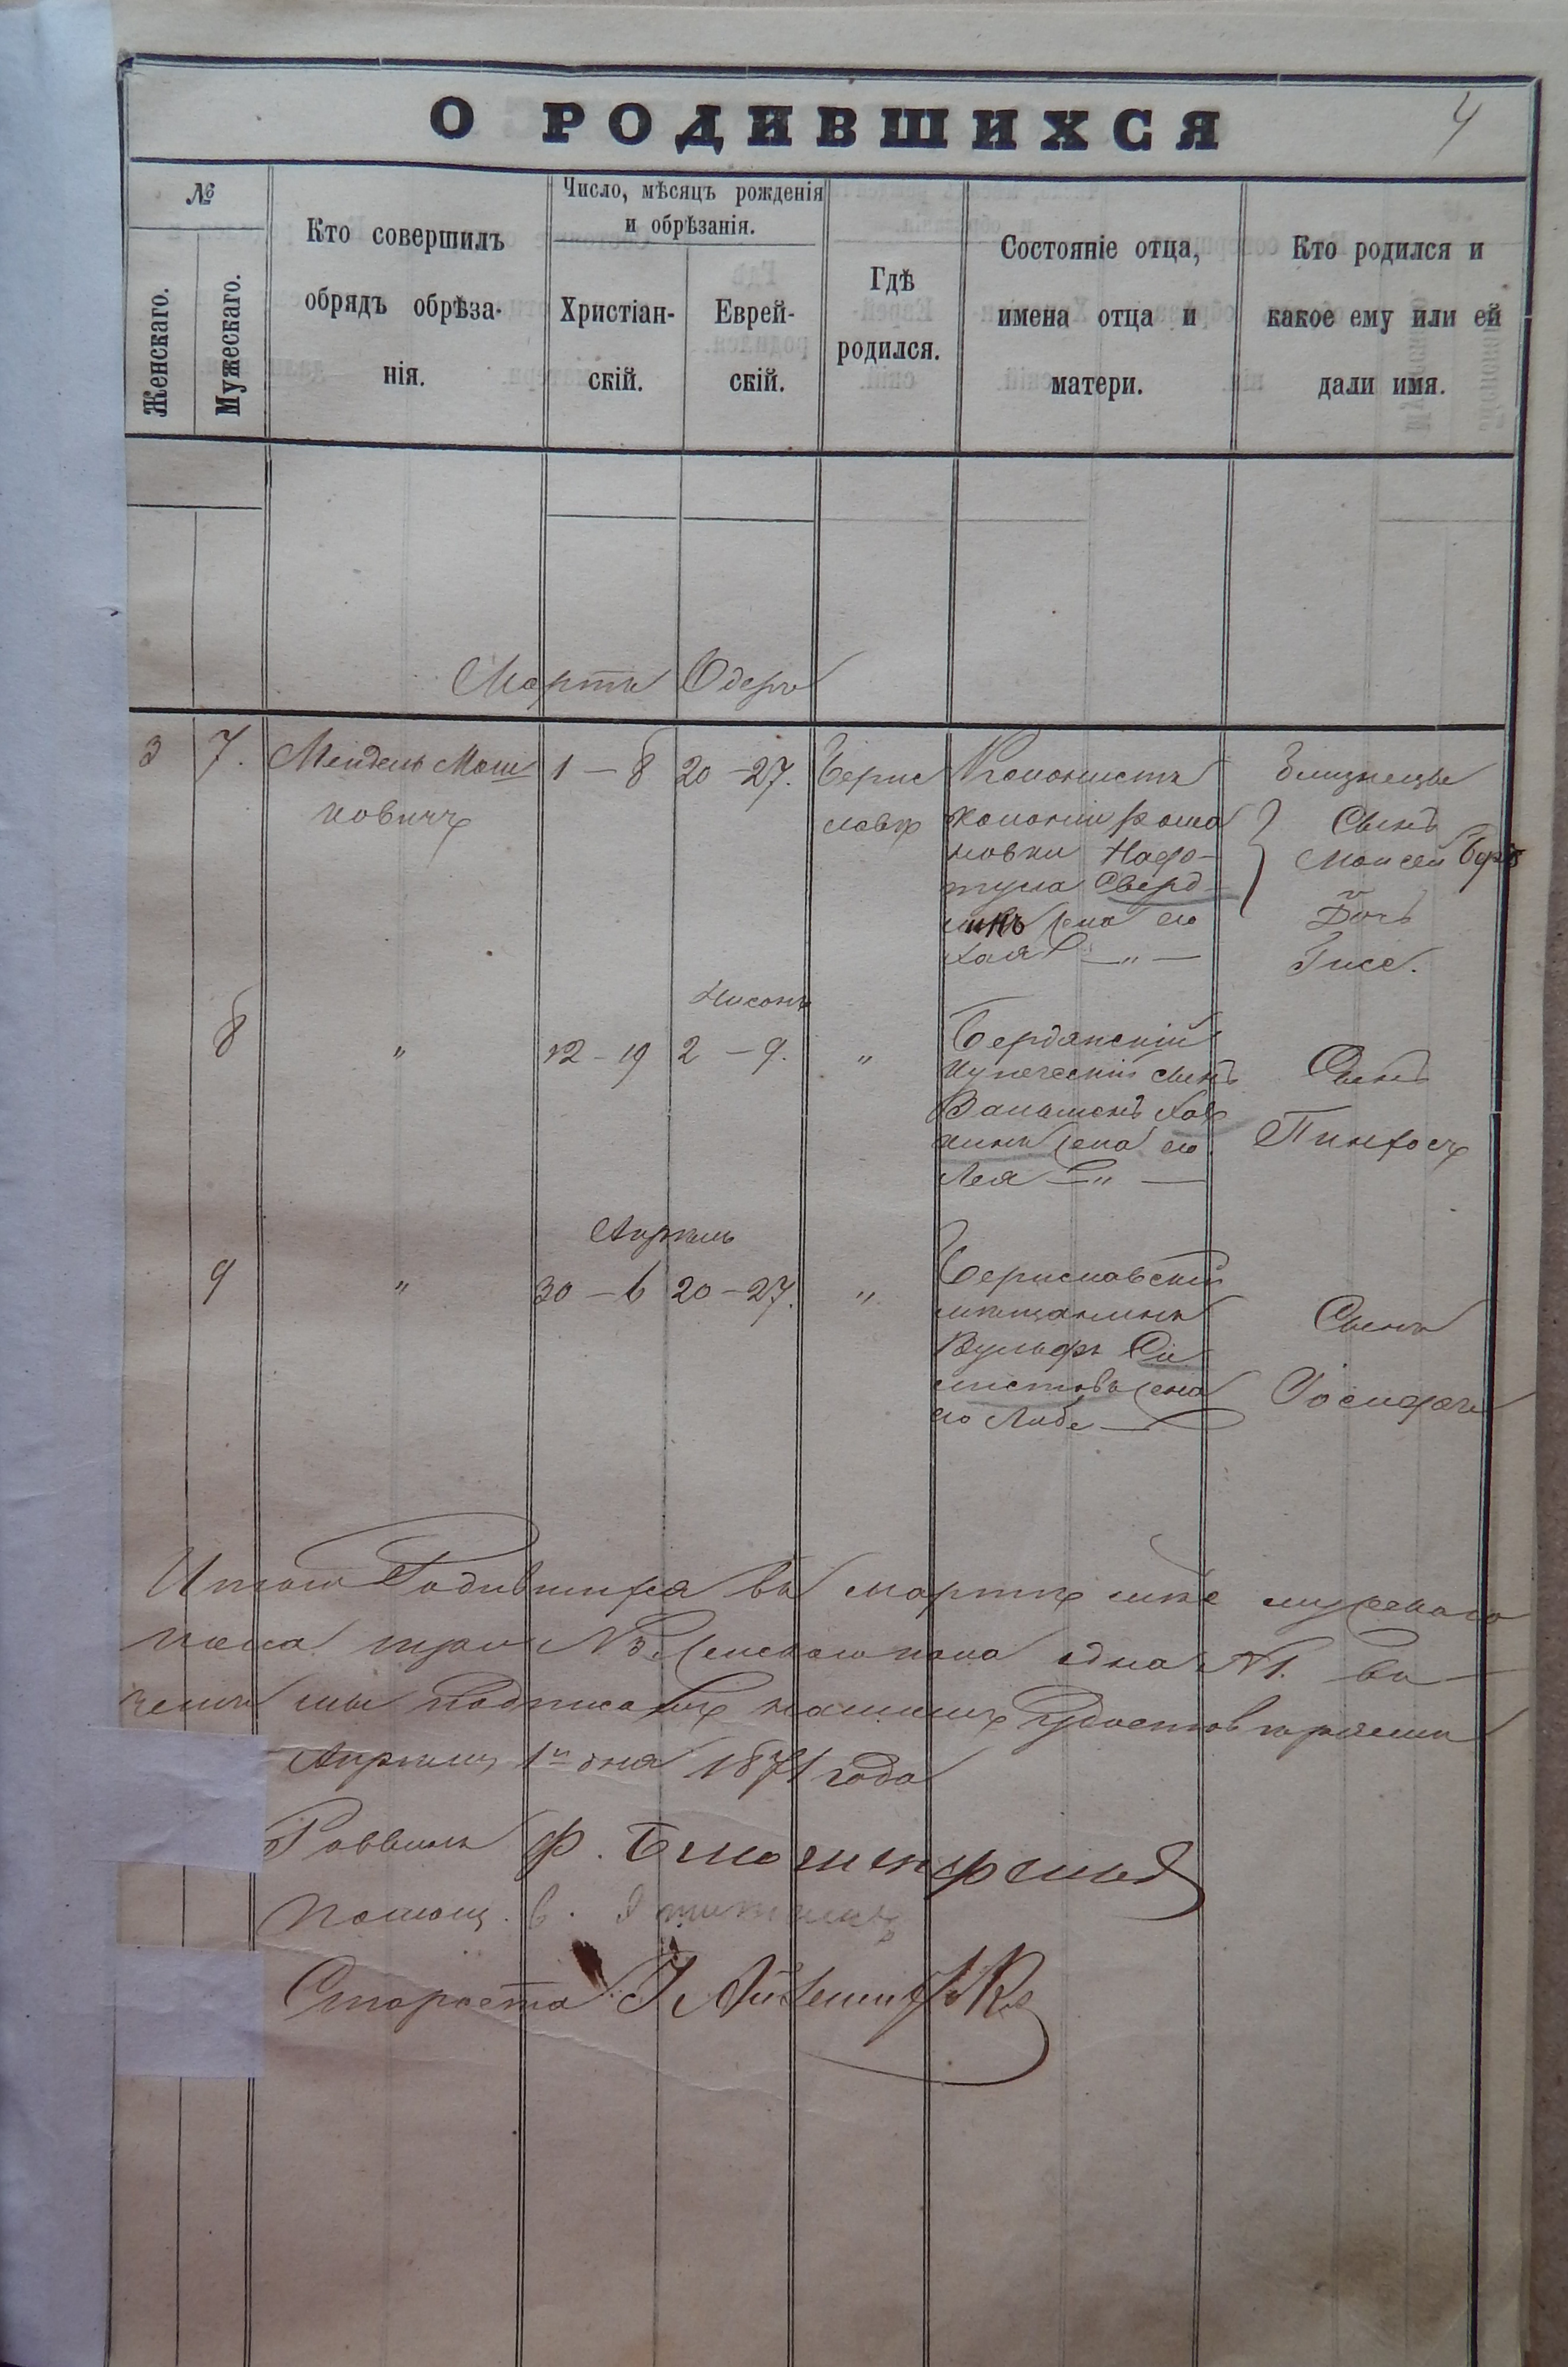 О РОДИВШИХСЯ
4
№
Женскаго.
Мужескаго.
Кто совершилъ
обрядъ обрѣза-
нія.
Число, мѣсяцъ рожденія
и обрѣзанія.
Христіан-
скій.
Еврей-
скій.
Гдѣ
родился.
Состояніе отца,
имена отца и
матери.
Кто родился и
какое ему или ей
дали имя.
Мартъ Одеръ
3 7. Мендель Мош
ковичъ
1 – 8 20 – 27.
Берис
лавѣ
Колонистъ
колоніи Рома
новки Наф-
тула Сверд
линъ жена его
Хая — " —
Близнецы
Сынъ
Моисей Беръ
и
Дочь
Гисе.
Нисонъ
8 " 12 – 19 2 – 9. "
Бердянскій
купеческій сынъ
жена его
Лея — " —
Сынъ
Пинхосъ
Апрѣль
9 " 30 – 6 20 – 27. "
Бериславскій
мѣщанинъ
Вульфъ
жена
его Либе —
Сынъ
Іосифъ
Итого Родившихся въ мартѣ м-цѣ мужескаго
пола три № 3. женскаго пола одна № 1. въ
чемъ мы подписомъ нашимъ удостовѣряемъ
Апрѣля 1го дня 1871 года
Раввинъ Ф. Блюменфельдъ
Помощ.
Староста